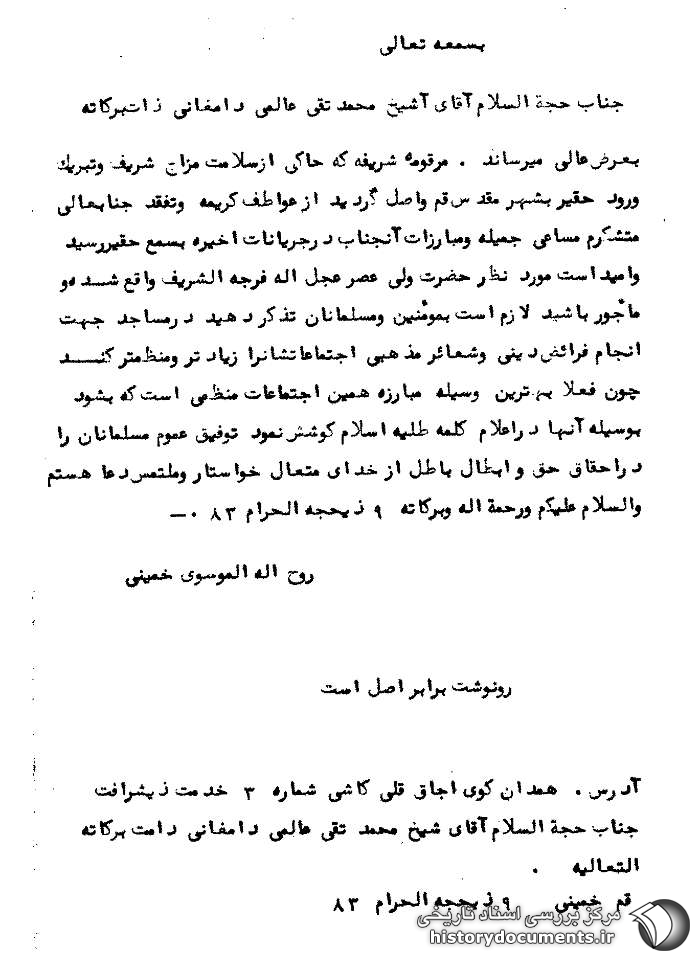 بسمعه تعالی
جناب حجة السلام آقای آشیخ محمد تقی عالمی دامغانی ذات برکاته
بعرض عالی میرساند . مرقومه شریفه که حاکی از سلامت مزاج شریف وتبریك
ورود حقیر بشهر مقدس قم واصل گردید از عواطف کریمه وتفقد جنابعالی
متشکرم مساعی جمیله ومبارزات آنجناب در جریانات اخیره بسمع حقیر رسید
وامید است مورد نظر حضرت ولی عصر عجل اله فرجه الشریف واقع شده و
مأجور باشید لازم است بمومنین ومسلمانان تذکر دهید در مساجد جهت
انجام فرائض دینی وشعائر مذهبی اجتماعاتشانرا زیاد تر ومنظمتر کنند
چون فعلا بهترین وسیله مبارزه همین اجتماعات منظمی است که بشود
بوسیله آنها در اعلام کلمه طلیه اسلام کوشش نمود توفیق عموم مسلمانان را
در احقاق حق و ابطال باطل از خدای متعال خواستار وملتمس دعا هستم
والسلام علیکم ورحمة اله وبرکاته ۹ ذیحجه الحرام ۸۳ ۰ـ
روح اله الموسوی خمینی
رونوشت برابر اصل است
آدرس . همدان کوی اجاق قلی کاشی شماره ۳ خدمت ذیشرافت
جناب حجة السلام آقای شیخ محمد تقی عالمی دامغانی دامت برکاته
التعالیه .
قم خمینی ۹ ذیحجه الحرام ۸۳
مرکز بررسی اسناد تاریخی
historydocuments.ir